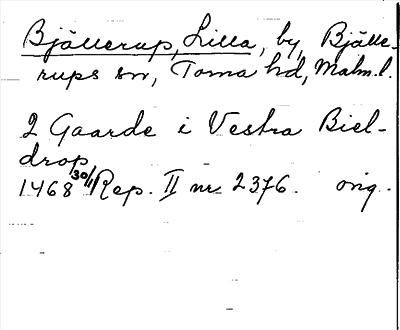 Bjällerup, Lilla, by, Bjälle-
rups sn, Torna hd, Malm.l.
2 Gaarde i Vestra Biel-
drop
1468 30/11 Rep. II nr 2376. orig.